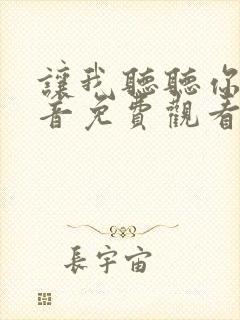 讓我聽聽你
音免費觀看
長宇宙